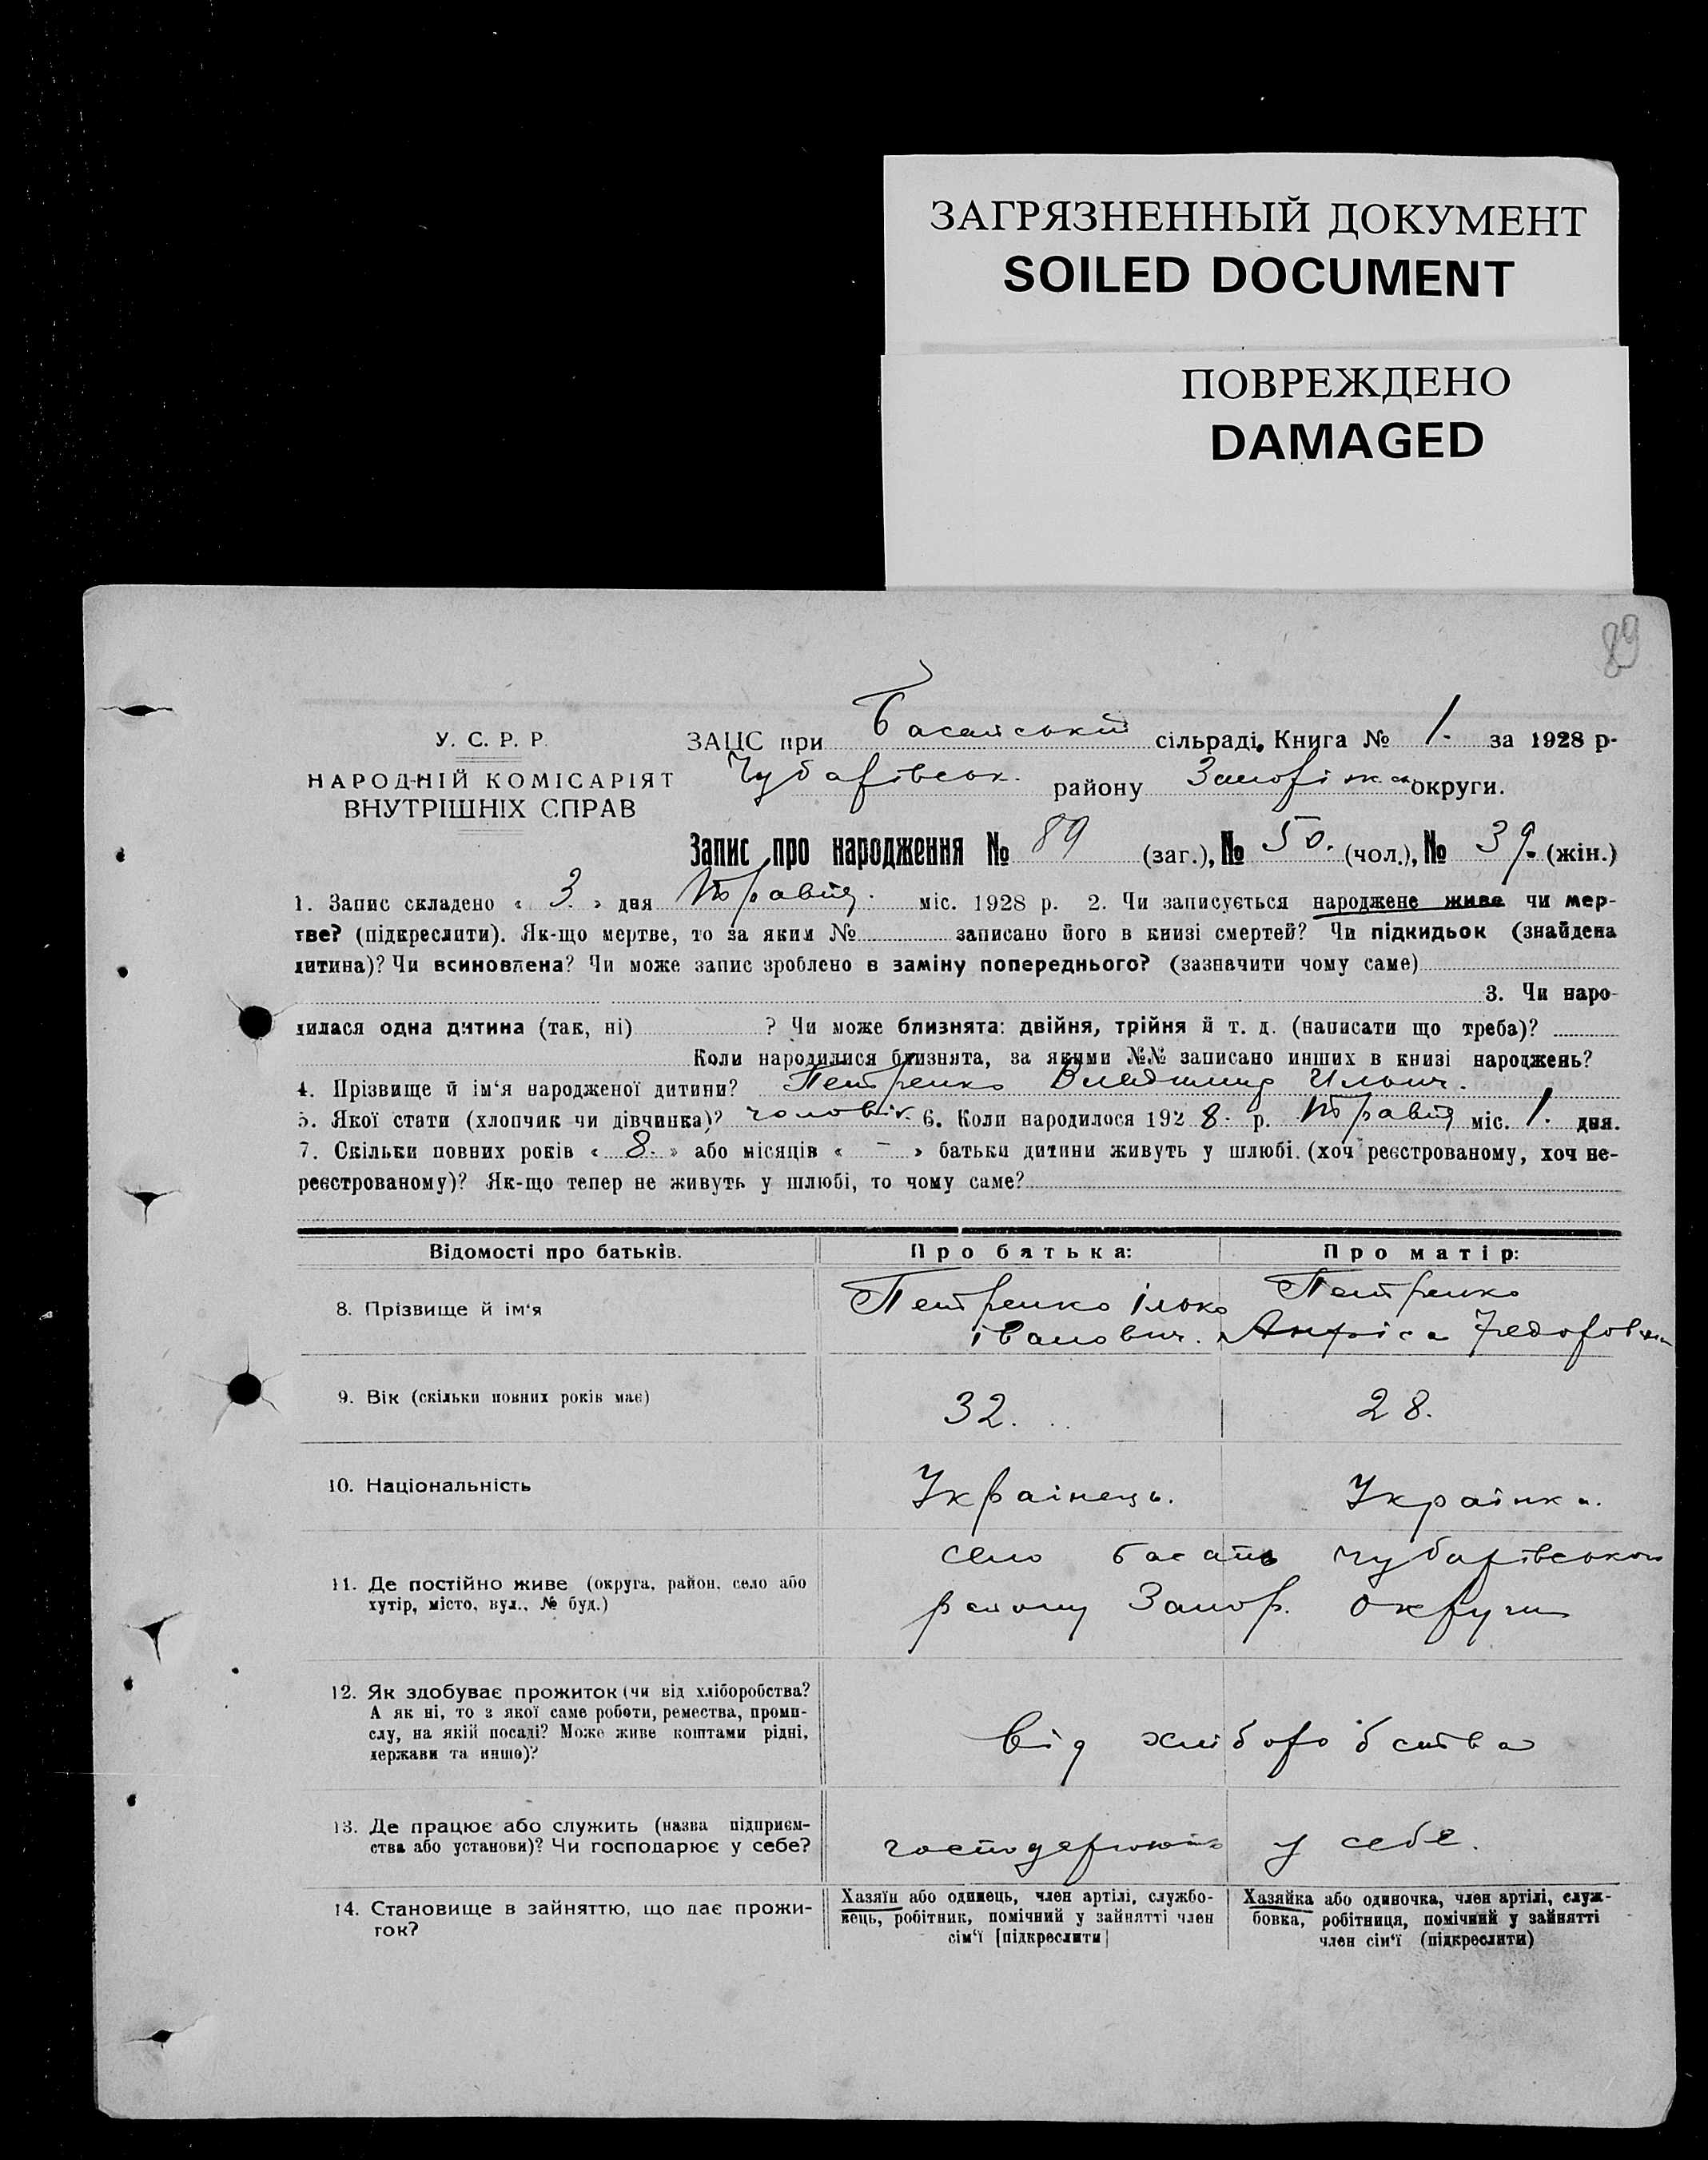 ЗАГРЯЗНЕННЫЙ ДОКУМЕНТ
SOILED DOCUMENT
ПОВРЕЖДЕНО
DAMAGED
89
У. С. Р. Р.
НАРОДНІЙ КОМІСАРІЯТ
ВНУТРІШНІХ СПРАВ
ЗАЦС при Басанській сільраді, Книга № 1. за 1928 р.
Чубарівськ. району Запоріжск округи.
Запис про народження № 89 (заг.), № 50. (чол.), № 39. (жін.)
1. Запис складено « 3 » дня Травня. міс. 1928 р. 2. Чи записується народжене живе чи мер-
тве? (підкреслити). Як-що мертве, то за яким № записано його в книзі смертей? Чи підкидьок (знайдена
дитина)? Чи всиновлена? Чи може запис зроблено в заміну попереднього? (зазначити чому саме)
3. Чи наро-
дилася одна дитина (так, ні) ? Чи може близнята: двійня, трійня й т. д. (написати що треба)?
Коли народилися близнята, за якими №№ записано инших в книзі народжень?
4. Прізвище й ім'я народженої дитини? Петренко Ильич.
5. Якої стати (хлопчик чи дівчинка)? чоловік. 6. Коли народилося 192 8. р. Травня міс. 1. дня.
7. Скільки повних років « 8. » або місяців « – » батьки дитини живуть у шлюбі. (хоч реєстрованому, хоч не-
реєстрованому)? Як-що тепер не живуть у шлюбі, то чому саме?
Відомості про батьків. Про батька: Про матір:
8. Прізвище й ім'я Петренко Ілько Іванович. Петренко Федоровна
9. Вік (скільки повних років має) 32. 28.
10. Національність Українець. Українка.
11. Де постійно живе (округа, район, село або
хутір, місто, вул., № буд.)
село Басань Чубарівського
району Запор. округи
12. Як здобуває прожиток (чи від хліборобства?
А як ні, то з якої саме роботи, ремества, промп-
слу, на якій посаді? Може живе коштами рідні,
держави та инщо)?
від хліборобства
13. Де працює або служить (назва підприєм-
ства або установи)? Чи господарює у себе?
господарюють у себе.
14. Становище в зайняттю, що дає прожи-
ток?
Хазяїн або одинець, член артілі, службо-
вець, робітник, помічний у зайнятті член
сім'ї [підкреслити]
Хазяйка або одиночка, член артілі, служ-
бовка, робітниця, помічний у зайнятті
член сім'ї (підкреслити)